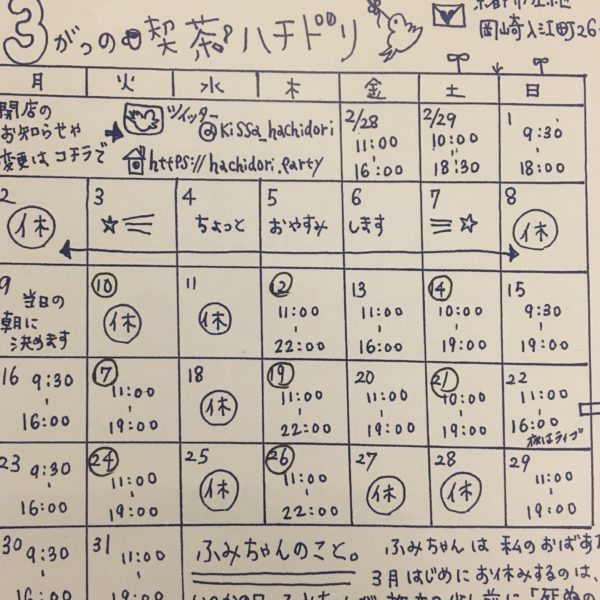 3がつの喫茶ハチドリ
岡崎入江町26-
月 火 水 木 金 土 日
開店の
お知らせや
変更はコチラで
ツイッター
@kissa_hachidori
https://hachidori.party
2/28
11:00
16:00
2/29
10:00
18:30
1
9:30
18:00
2
休
3
4
ちょっと
5
おやすみ
6
します
7
8
休
9
当日の
朝に
決めます
10
休
11
休
12
11:00
22:00
13
11:00
16:00
14
10:00
19:00
15
9:30
19:00
16
9:30
16:00
17
11:00
19:00
18
休
19
11:00
22:00
20
11:00
19:00
21
10:00
19:00
22
11:00
16:00
夜はライブ
23
9:30
16:00
24
11:00
19:00
25
休
26
11:00
22:00
27
休
28
休
29
11:00
19:00
30
9:30
16:00
31
11:00
19:00
ふみちゃんのこと。
ふみちゃんは私のおばあ
3月はじめにお休みするのは、